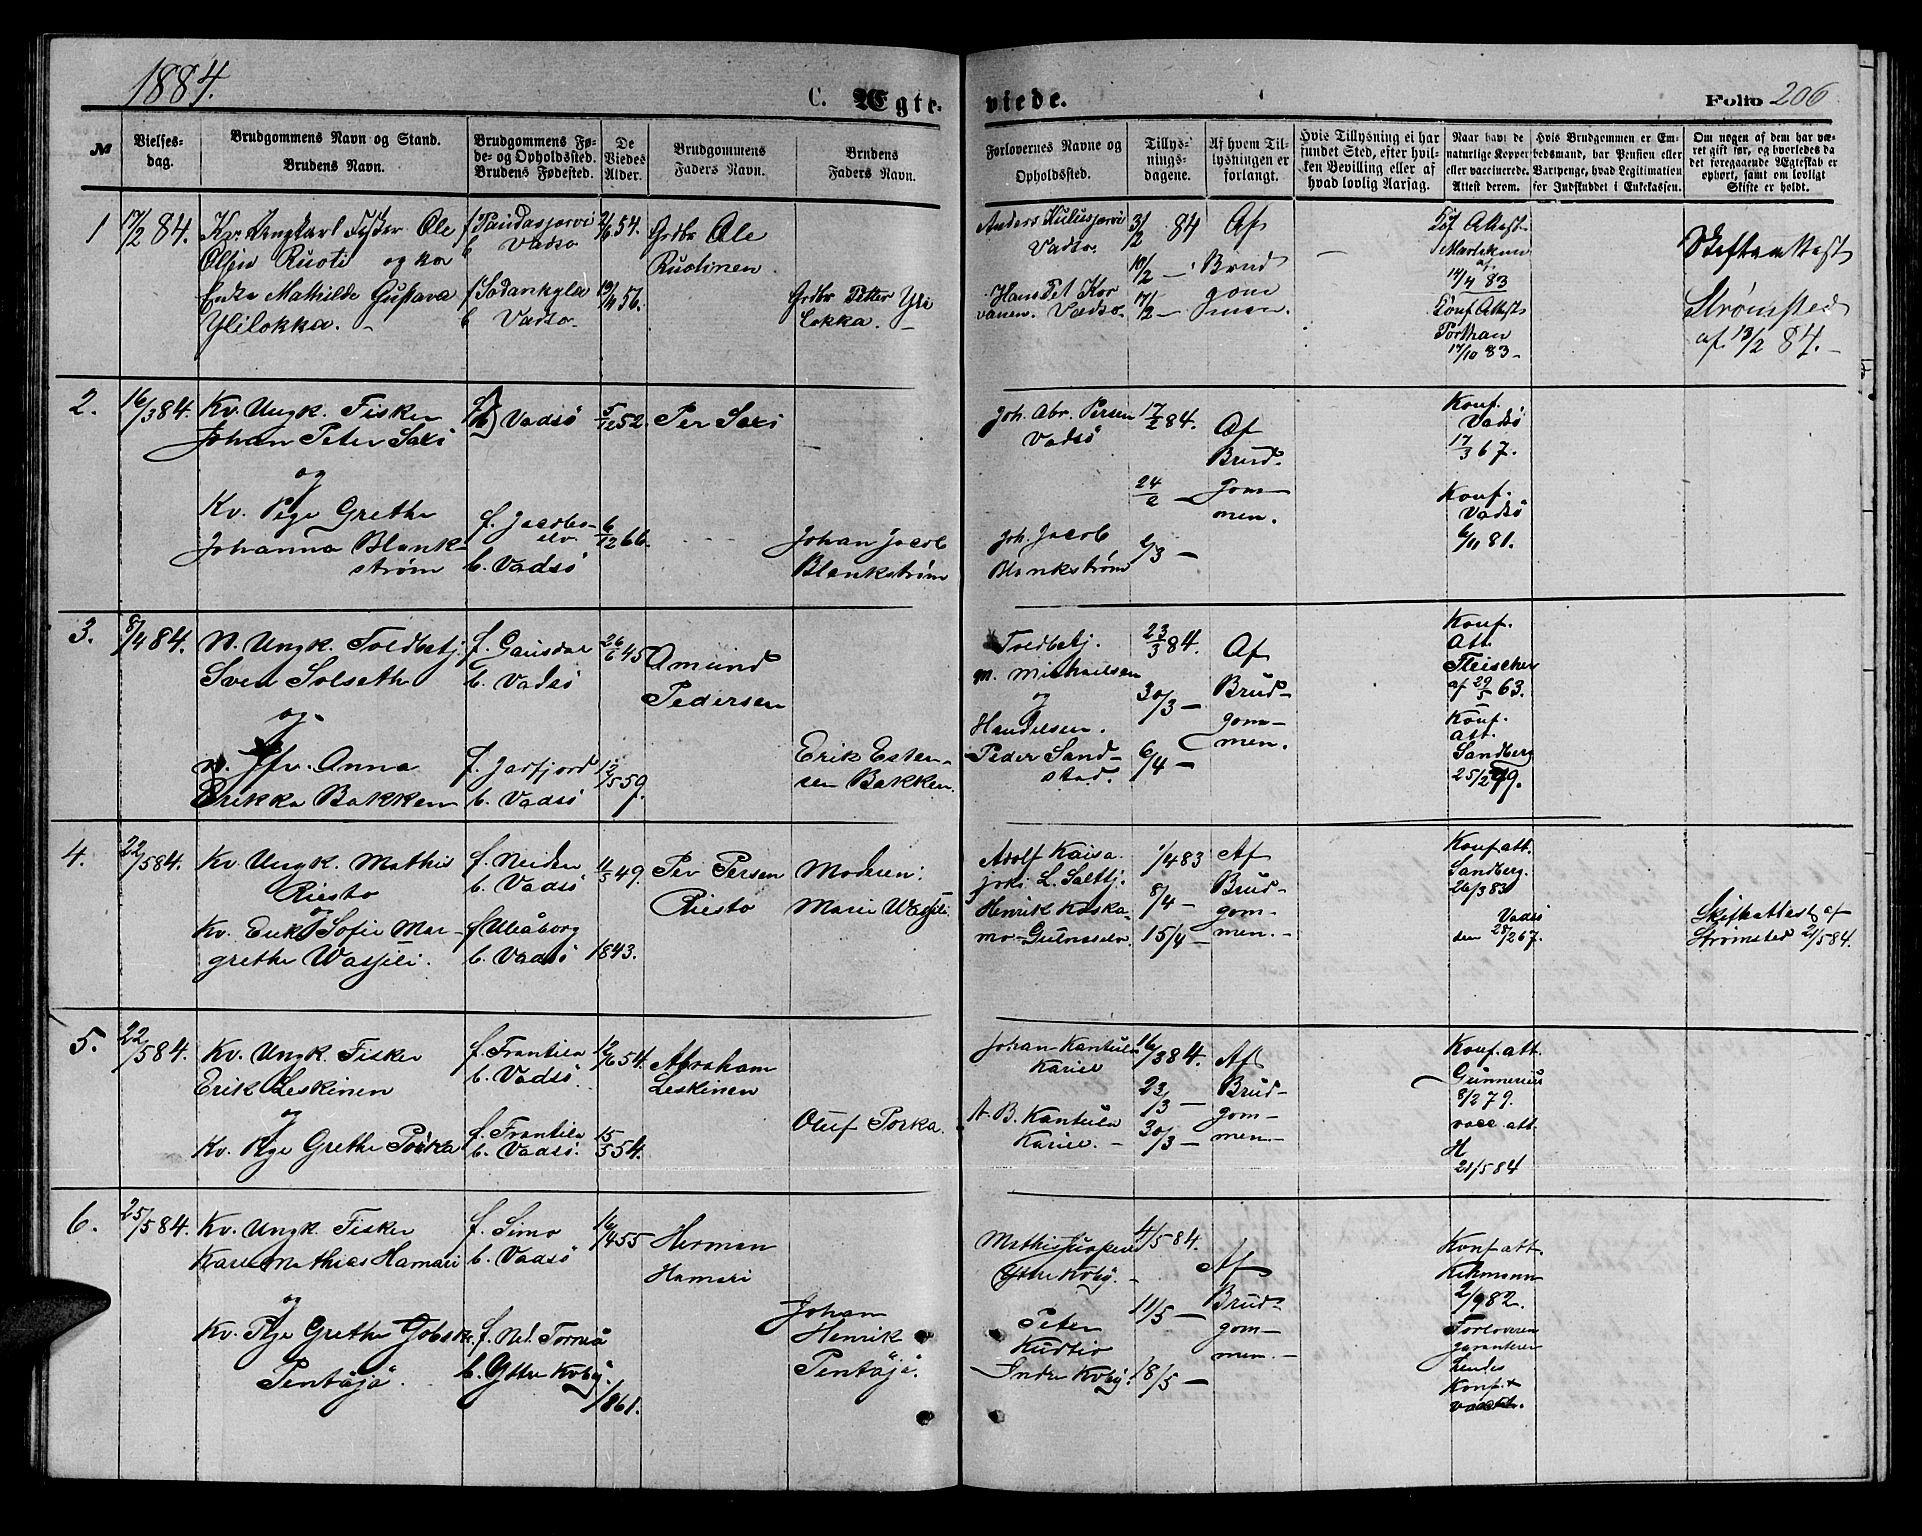 1884.
C. Ægte-
viede.
Folio 206
№
Vielses-
dag.
Brudgommens Navn og Stand.
Brudens Navn.
Brudgommens Fø-
de- og Opholdssted.
Brudens Fødested.
De
Viedes
Alder.
Brudgommens
Faders Navn.
Brudens
Faders Navn.
Forlovernes Navne og
Opholdssted.
Tillys-
nings-
dagene.
Af hvem Til-
lysningen er
forlangt.
Hvis Tillysning ei har
fundet Sted, efter hvil-
ken Bevilling eller af
hvad lovlig Aarsag.
Naar havt de
naturlige Kopper
eller vaccinerede.
Attest derom.
Hvis Brudgommen er Em-
bedsmand, har Pension eller
Vartpenge, hvad Legitimation
for Indskudet i Enkekassen.
Om nogen af dem har væ-
ret gift før, og hvorledes da
det foregaaende Ægteskab er
ophørt, samt om lovligt
Skifte er holdt.
1
17/2 84.
Kv. Ungkarl Fisker Ole
Olsen Ruoti og Kv
Enke Mathilde Gustava
Ylilokka.
Vadsø
f Sodankyla
b Vadsø
54.
56.
Grdbr Ole
Ruotinen
Grdbr Petter Yli
Lokka.
Vadsø
Hans Pet Kor
vanen. Vadsø
3/2 84
10/2 —
17/2 —
Af
Brud
gom
men.
14/4 83
17/10 83
Skifteattest
Strømsted
af 13/2 84.
2.
16/3 84.
Kv. Ungk. Fisker
Johan Peter Saxi
og
Kv. Pige Grethe
Johanna Blank-
strøm
Vadsö
f. Jacobs-
elv
b. Vadsö
5/12 52.
6/12 66.
Per Saxi
Johan Jacob
Blankstrøm
Joh. Abr. Persen
Vadsö
Joh. Jacob
Blankstrøm
17/2 84.
24/2 —
2/3 —
Af
Brud-
gom-
men.
Konf.
Vadsö
17/3 67.
Konf.
Vadsö
6/11 81.
3.
8/4 84.
N. Ungk. Toldbetj.
Sven Solseth
og
N. Jfr. Anna
Erikka Bakken
f. Gausdal
b. Vadsö
f. Jarfjord
b. Vadsö
26/6 45
13/5 59.
Amund
Pedersen
Erik Esten-
sen Bakken.
Toldbetj.
M. Michaelsen
og
Handelsm.
Peder Sand-
stad.
23/3 84.
30/3 —
6/4 —
Af
Brud-
gom-
men.
Konf.
Att.
Fleischer
af 29/5 63.
Konf.
att.
Sandberg
25/2 79.
4.
22/5 84.
Kv. Ungk. Mathis
Riesto
og
Kv. Enke Sofie Mar-
grethe Wassjeli.
f. Neiden
b. Vadsö
f Uleåborg
b. Vadsö
11/5 49.
1843.
Per Persen
Riesto
Moderen:
Marie Wassjeli.
Adolf Kaisa
joki L. Salttj.
Henrik Koska-
mo-
1/4 83
8/4 —
15/4 —
Af
Brud-
gom-
men.—
Konf. att.
Sandberg.
26/3 83
Vadsö
den 28/2 67.
Skifteattest af
Strømsted 21/5 84.
5.
22/5 84.
Kv. Ungk. Fisker
Erik Leskinen
og
Kv. Pige Grethe Porkka
f. Frantila
b. Vadsö.
f. Frantila
b. Vadsö.
12/6 54.
15/5 54.
Abraham
Leskinen
Oluf Porka.
Johan Kantula
Kariel
A. B. Kantula
Kariel. —
16/3 84.
23/3 —
30/3 —
Af
Brud-
gom-
men.—
Konf. att.
Gunnerius
8/2 79.
vacc att.
H
21/5 84
6.
25/5 84.
Kv. Ungk. Fisker
Karl Mathias Hamari
og
Kv. Pige Grethe
Pentäjä.
f. Simo
b. Vadsö
f. Ned. Torneå
b. Yttre Kvby.
16/4 55
1861.
Herman
Hamari
Johan
Henrik
Pentäjä.
Yttre Kvby.
Peter
Indre Kvby.
4/5 84.
11/5 —
18/5 —
Af
Brud-
gom-
men.—
Konf. att.
2/9 82.
Forloveren
garanterer
Konf. +